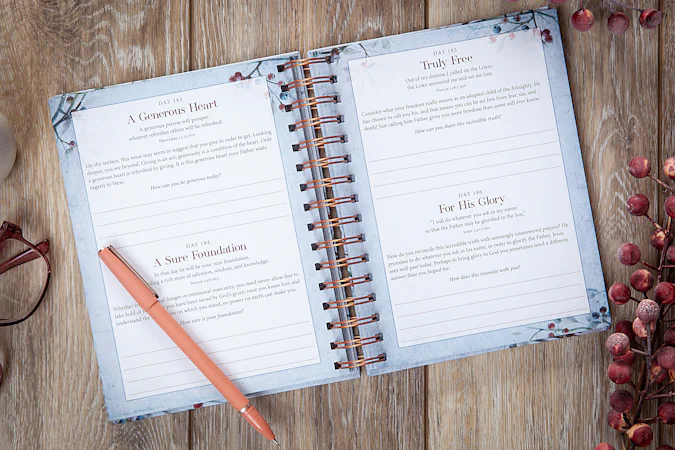 DAY 183
A Generous Heart
A generous person will prosper;
whoever refreshes others will be refreshed.
On the surface, this verse may seem to suggest that you give in order to get. Looking
deeper, you see beyond. Giving is an act; generosity is a condition of the heart. Only
a generous heart is refreshed by giving. It is this generous heart your Father waits
eagerly to bless.
How can you be generous today?
DAY 184
A Sure Foundation
In that day he will be your sure foundation,
a rich store of salvation, wisdom, and knowledge
danger or emotional insecurity, you need never allow fear to
take hold of you have been saved by God's grace, once you know him and
understand the on which you stand, no power on earth can shake you.
How sure is your foundation?
DAY 185
Truly Free
Out of my distress I called on the LORD;
the LORD answered me and set me free.
Consider what your freedom really means as an adopted child of the Almighty. He
has chosen to call you his, and that means you can be set free from fear, sin, and
death! Just calling him Father gives you more freedom than some will ever know.
How can you share this incredible truth?
DAY 186
For His Glory
"I will do whatever you ask in my name,
so that the Father may be glorified in the Son."
How do you reconcile this incredible truth with seemingly unanswered prayers? He
promises to do whatever you ask in his name, in order to glorify the Father. Jesus
sees well past today. Perhaps to bring glory to God you sometimes need a different
answer than you hoped for.
How does this resonate with you?